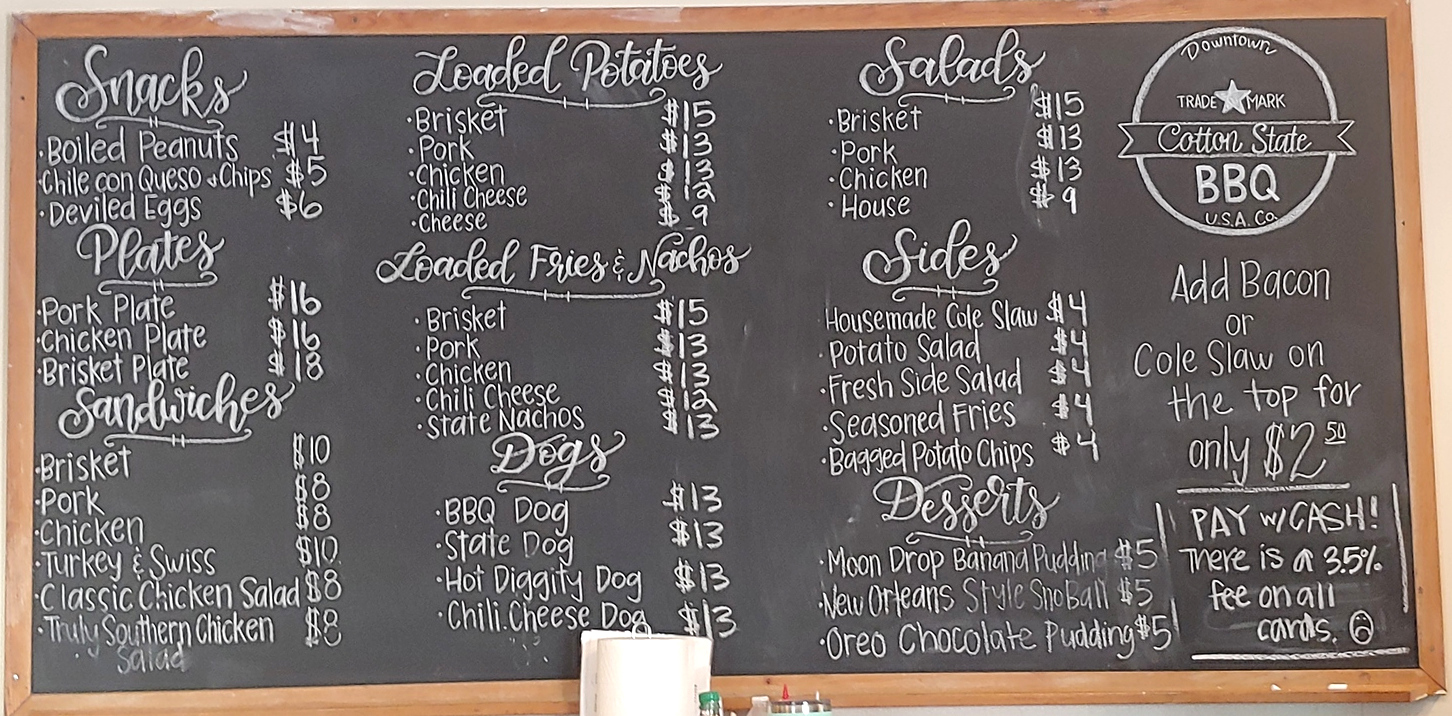 Snacks
·Boiled Peanuts $4
·Chile con Queso + Chips $5
·Deviled Eggs $6
Plates
·Pork Plate $16
·Chicken Plate $16
·Brisket Plate $18
Sandwiches
·Brisket $10
·Pork $8
·Chicken $8
·Turkey & Swiss $10
·Classic Chicken Salad $8
·Truly Southern Chicken $8
Salad
Loaded Potatoes
·Brisket $15
·Pork $13
·Chicken $13
·Chili Cheese $12
·Cheese $9
Loaded Fries & Nachos
·Brisket $15
·Pork $13
·Chicken $13
·Chili Cheese $12
·State Nachos $13
Dogs
·BBQ Dog $13
·State Dog $13
·Hot Diggity Dog $13
·Chili Cheese Dog $13
Salads
·Brisket $15
·Pork $13
·Chicken $13
·House $9
Sides
Housemade Cole Slaw $4
·Potato Salad $4
·Fresh Side Salad $4
·Seasoned Fries $4
·Bagged Potato Chips $4
Desserts
·Moon Drop Banana Pudding $5
·New Orleans Style SnoBall $5
·Oreo Chocolate Pudding $5
Downtown
TRADE MARK
Cotton State
BBQ
U.S.A. Co.
Add Bacon
or
Cole Slaw on
the top for
only $2 50
PAY w/ CASH!
There is a 3.5%
fee on all
cards. ☹